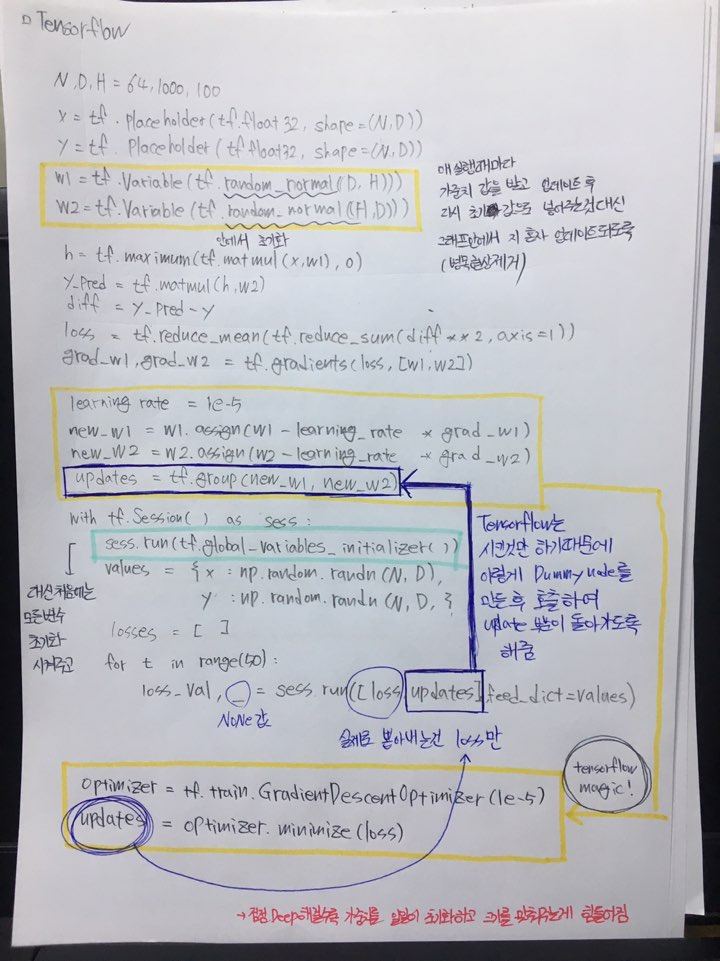 □ Tensorflow
N, D, H = 64, 1000, 100
x = tf . placeholder(tf.float32, shape=(N,D))
y = tf . placeholder(tf.float32, shape=(N,D))
w1 = tf.Variable(tf.random_normal((D, H)))
w2 = tf.Variable(tf.random_normal((H,D)))
안에서 초기화
매 실행때마다
가중치 값을 받고 업데이트 후
다시 초기 값으로 넣어주는것 대신
그래프안에서 지 혼자 업데이트되도록
(병목현상제거)
h = tf.maximum(tf.matmul(x,w1), 0)
y_pred = tf.matmul(h,w2)
diff = y_pred-y
loss = tf.reduce_mean(tf.reduce_sum(diff**2, axis=1))
grad_w1, grad_w2 = tf.gradients(loss, [w1,w2])
learning rate = 1e-5
new_w1 = w1.assign(w1-learning_rate * grad_w1)
new_w2 = w2.assign(w2-learning_rate * grad_w2)
updates = tf.group(new_w1, new_w2)
with tf.Session( ) as sess :
sess.run(tf.global_variables_initializer( ))
values = { x : np.random.randn(N, D),
y : np.random.randn(N, D, }
losses = [ ]
for t in range(50) :
loss_val, _ = sess.run([loss, updates], feed_dict=values)
대신 처음에는
모든변수
초기화
시켜주고
Tensorflow는
시킨것만 하기때문에
이렇게 Dummy node를
만든후 호출하여
update 부분이 돌아가도록
해줌
NONE값
실제로 뽑아내는건 loss만
optimizer = tf.train.GradientDescentOptimizer(1e-5)
updates = optimizer.minimize(loss)
tensorflow
magic!
→ 점점 Deep해질수록 가중치를 일일이 초기화하고 크기를 맞춰주는게 힘들어짐